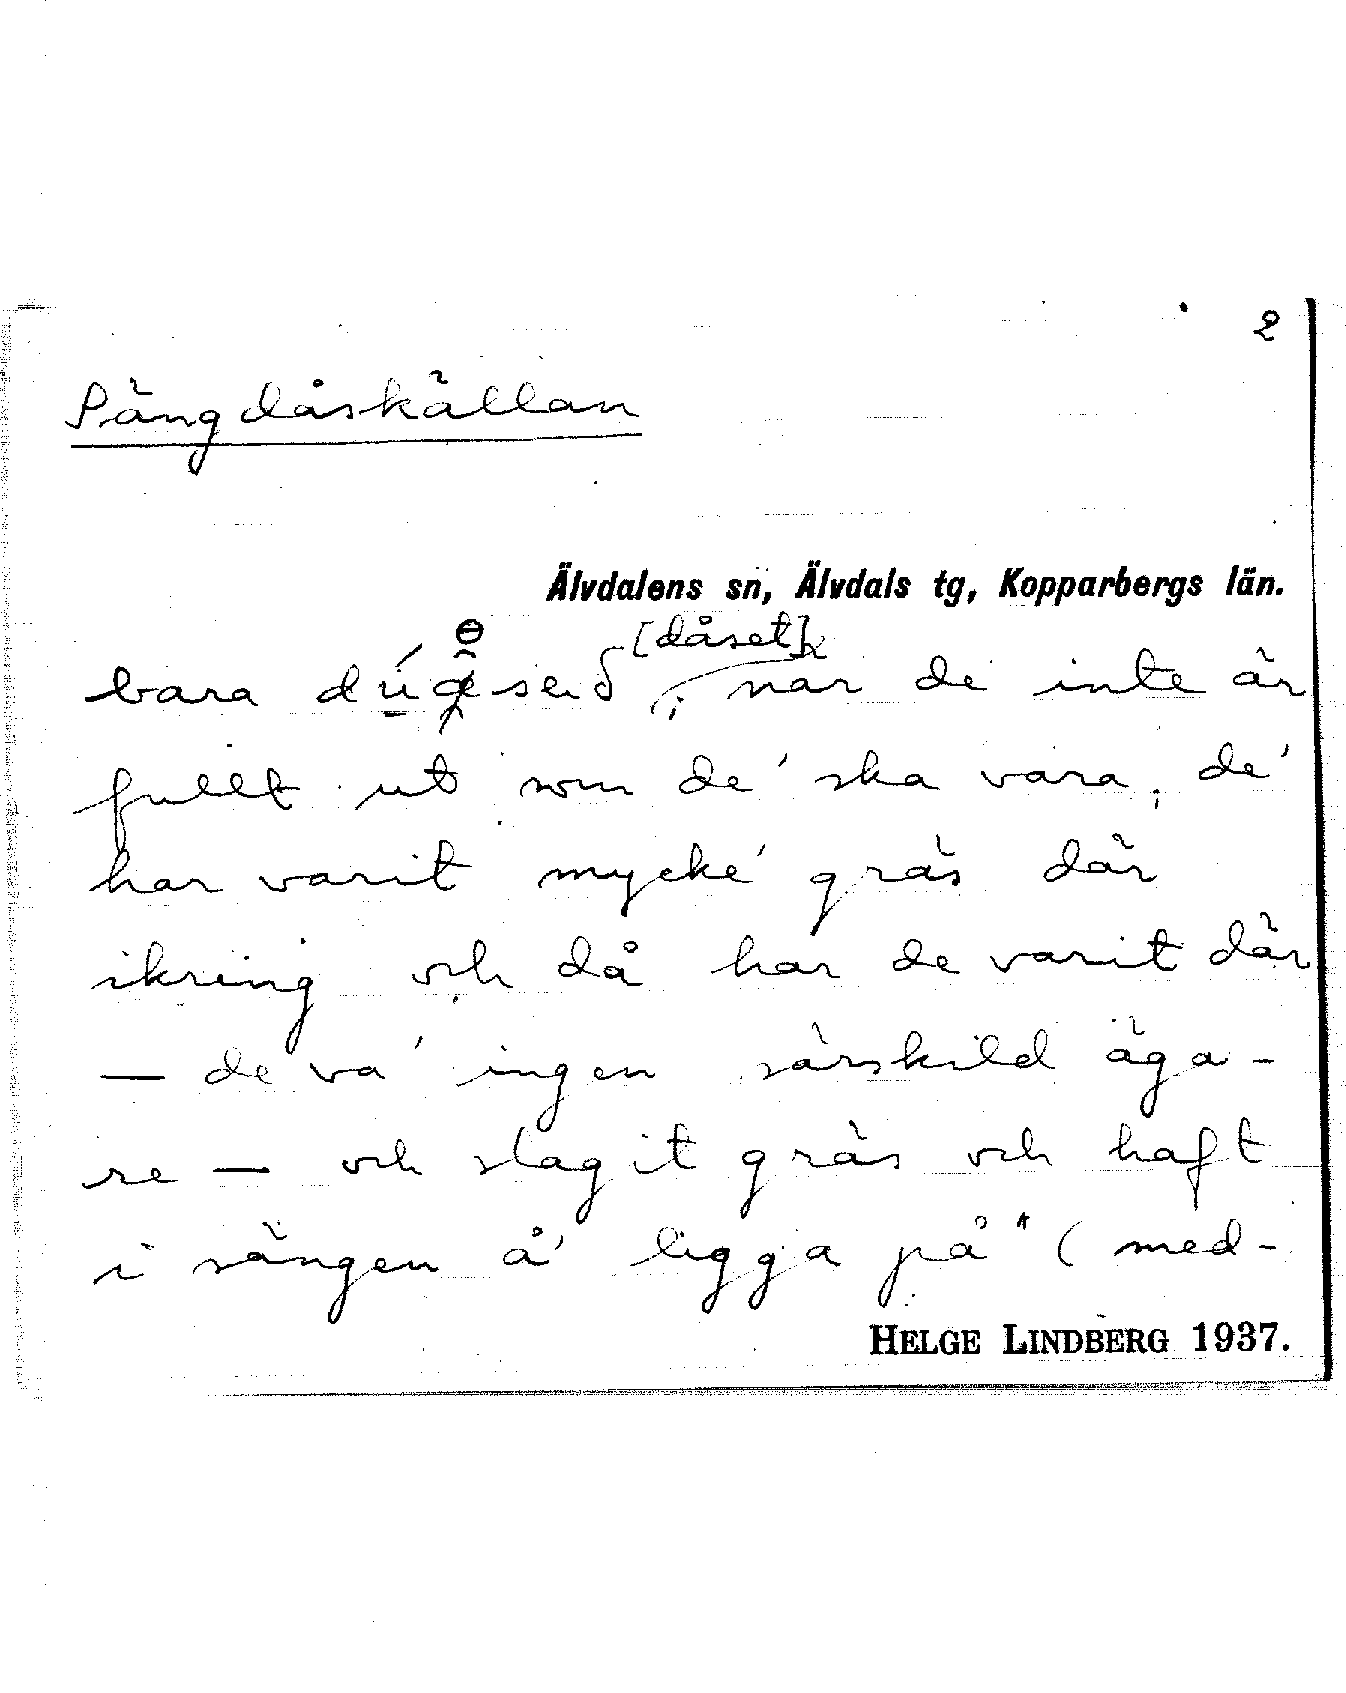 2
Sängdåskällan
Älvdalens sn, Älvdals tg, Kopparbergs län.
[dåset]
bara ; när de inte är
fullt ut som de' ska vara, de'
har varit mycke' gräs där
ikring och då har de varit där
— de va' ingen särskild äga-
re — och slagit gräs och haft
i sängen å' ligga på" (med-
HELGE LINDBERG 1937.